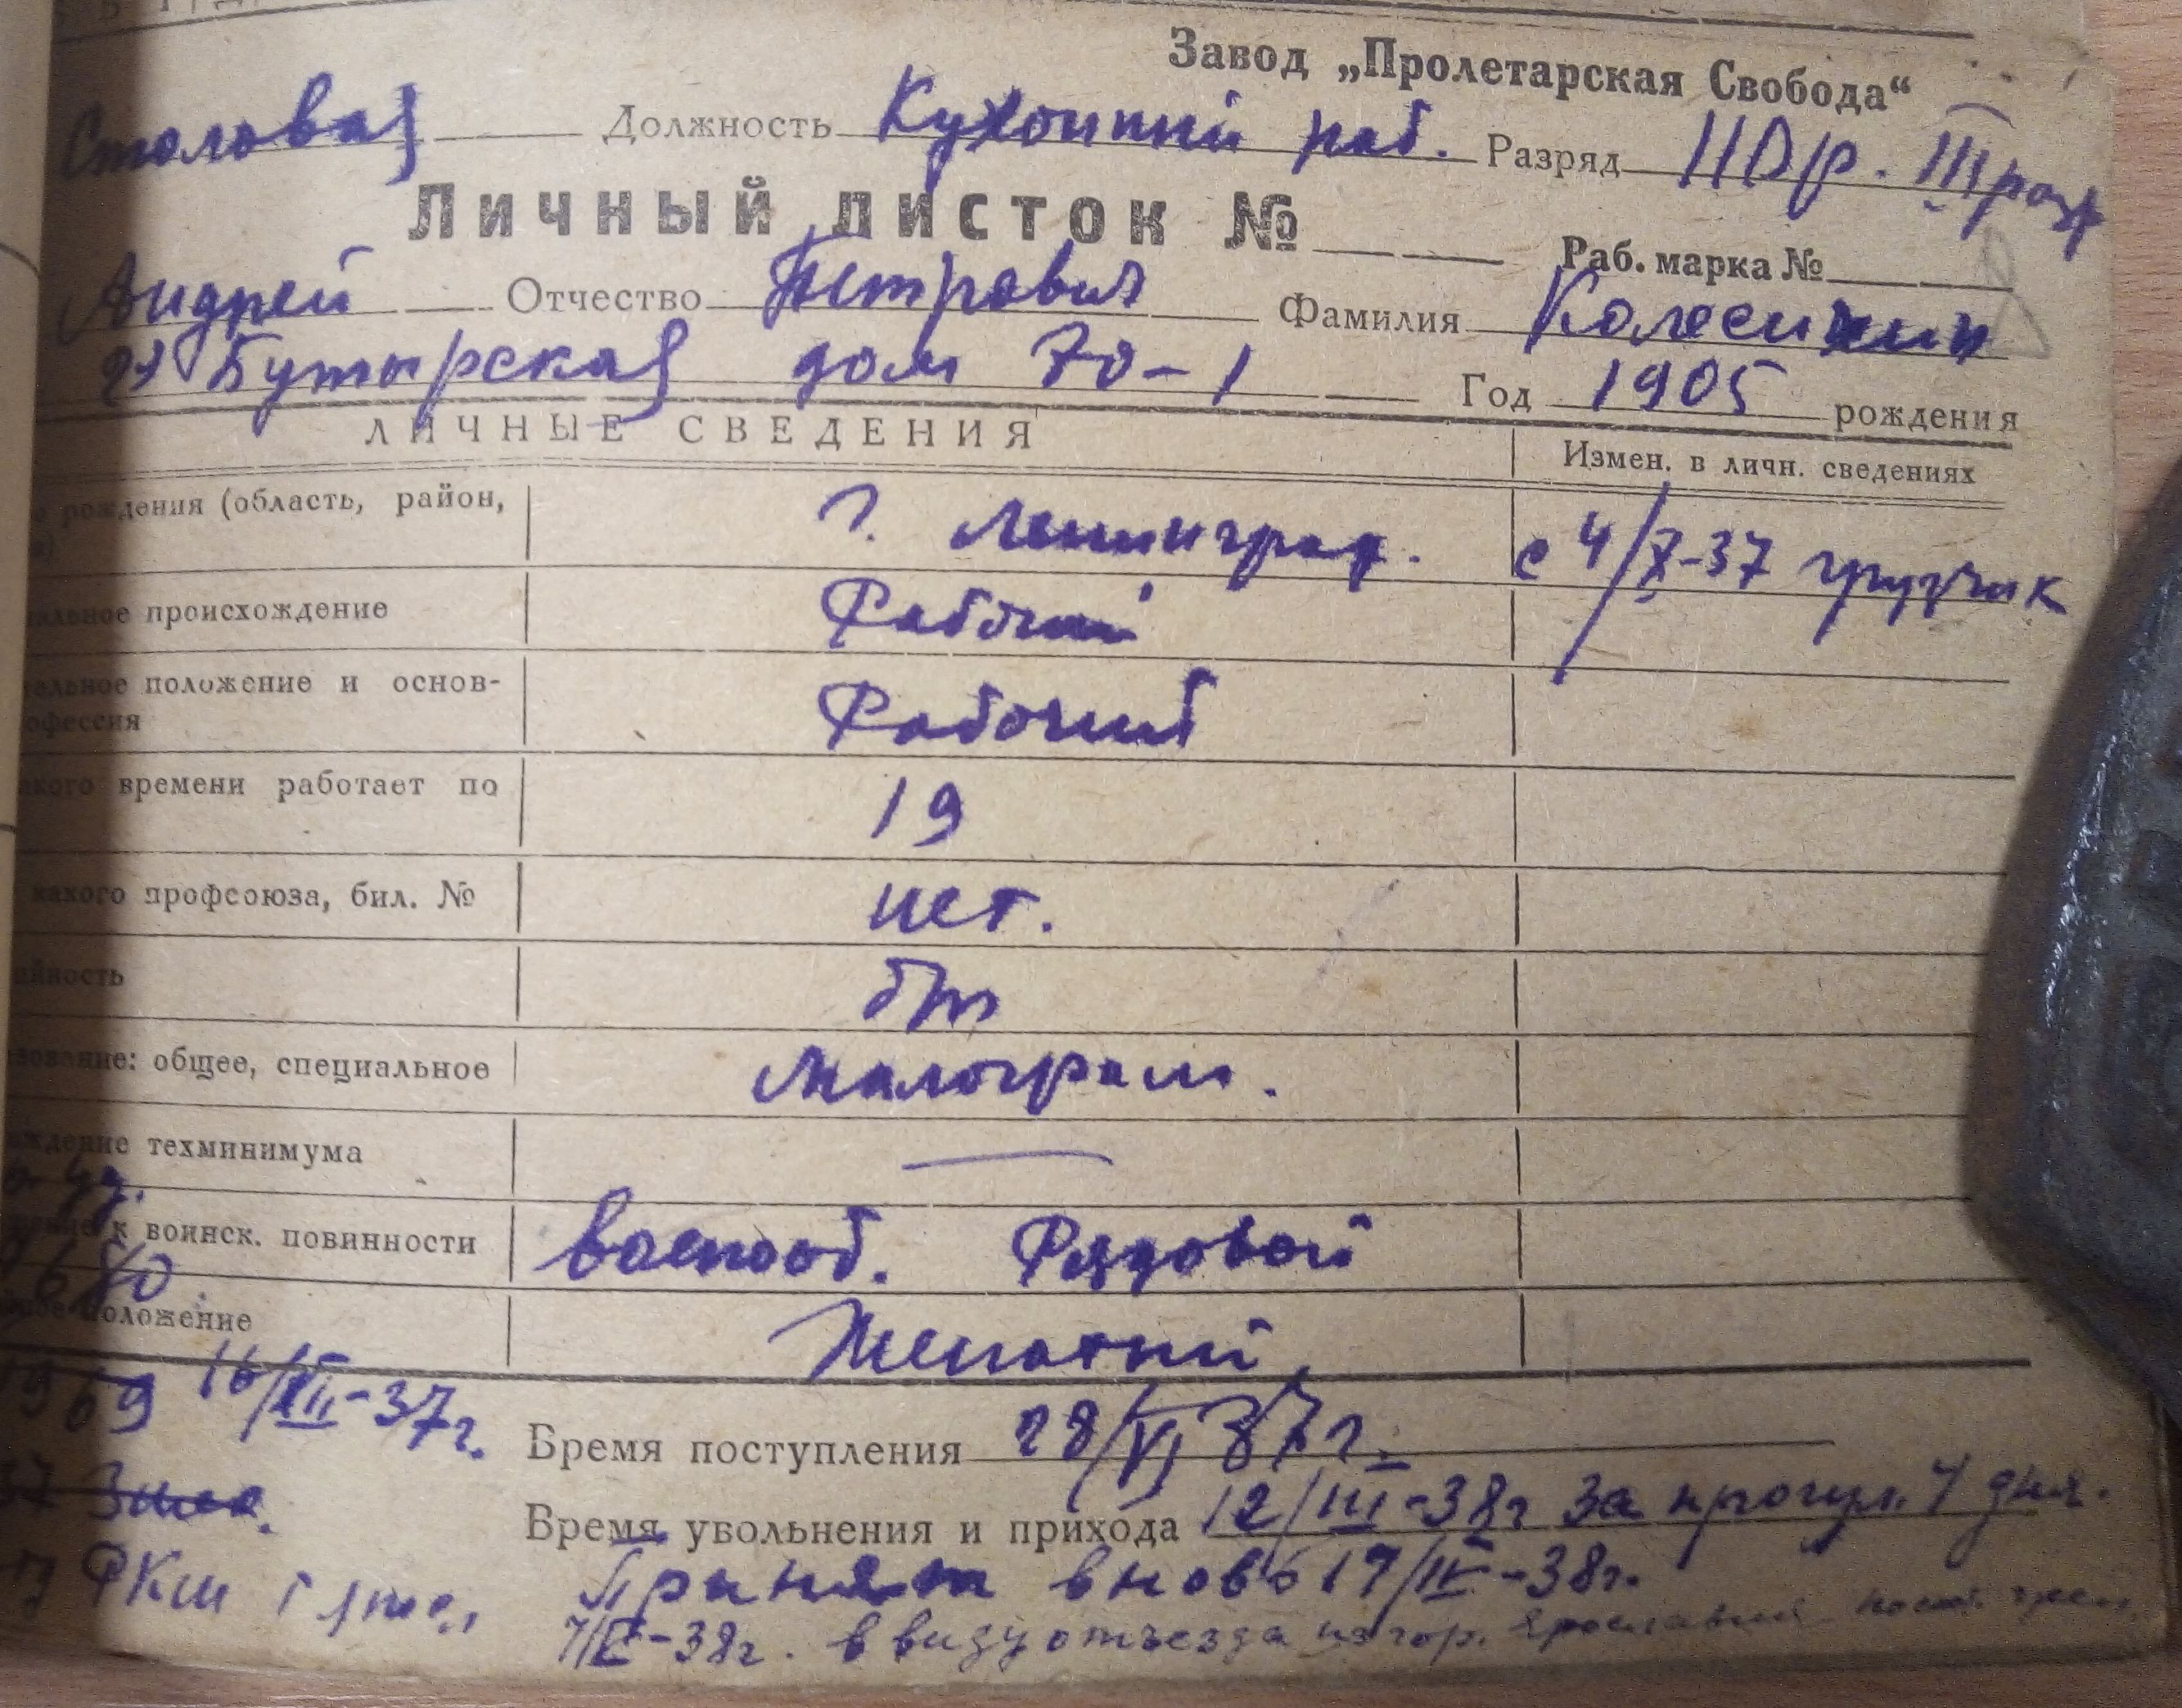 Завод „Пролетарская Свобода“
Столовая Должность Кухонный раб. Разряд 110 р. III разр
Личный листок №
Раб. марка №
Андрей Отчество Петрович Фамилия
Бутырская дом 70-1 Год 1905 рождения
ЛИЧНЫЕ СВЕДЕНИЯ Измен. в личн. сведениях
рождения (область, район, г. Ленинград. с 4/X-37 грузчик
происхождение Рабочий
положение и основ-
офессия Рабочий
времени работает по 19
какого профсоюза, бил. № нет.
йность б/п
зование: общее, специальное малограм.
ждение техминимума —
к воинск. повинности Рядовой
680
положение Женатый
69 16/VIII-37г. Время поступления 28/VI 37г.
Время увольнения и прихода 12/III-38г за прогул. 4 дня.
РКМ Принят вновь 17/III-38г.
-38г. в виду отъезда из гор. Ярославля